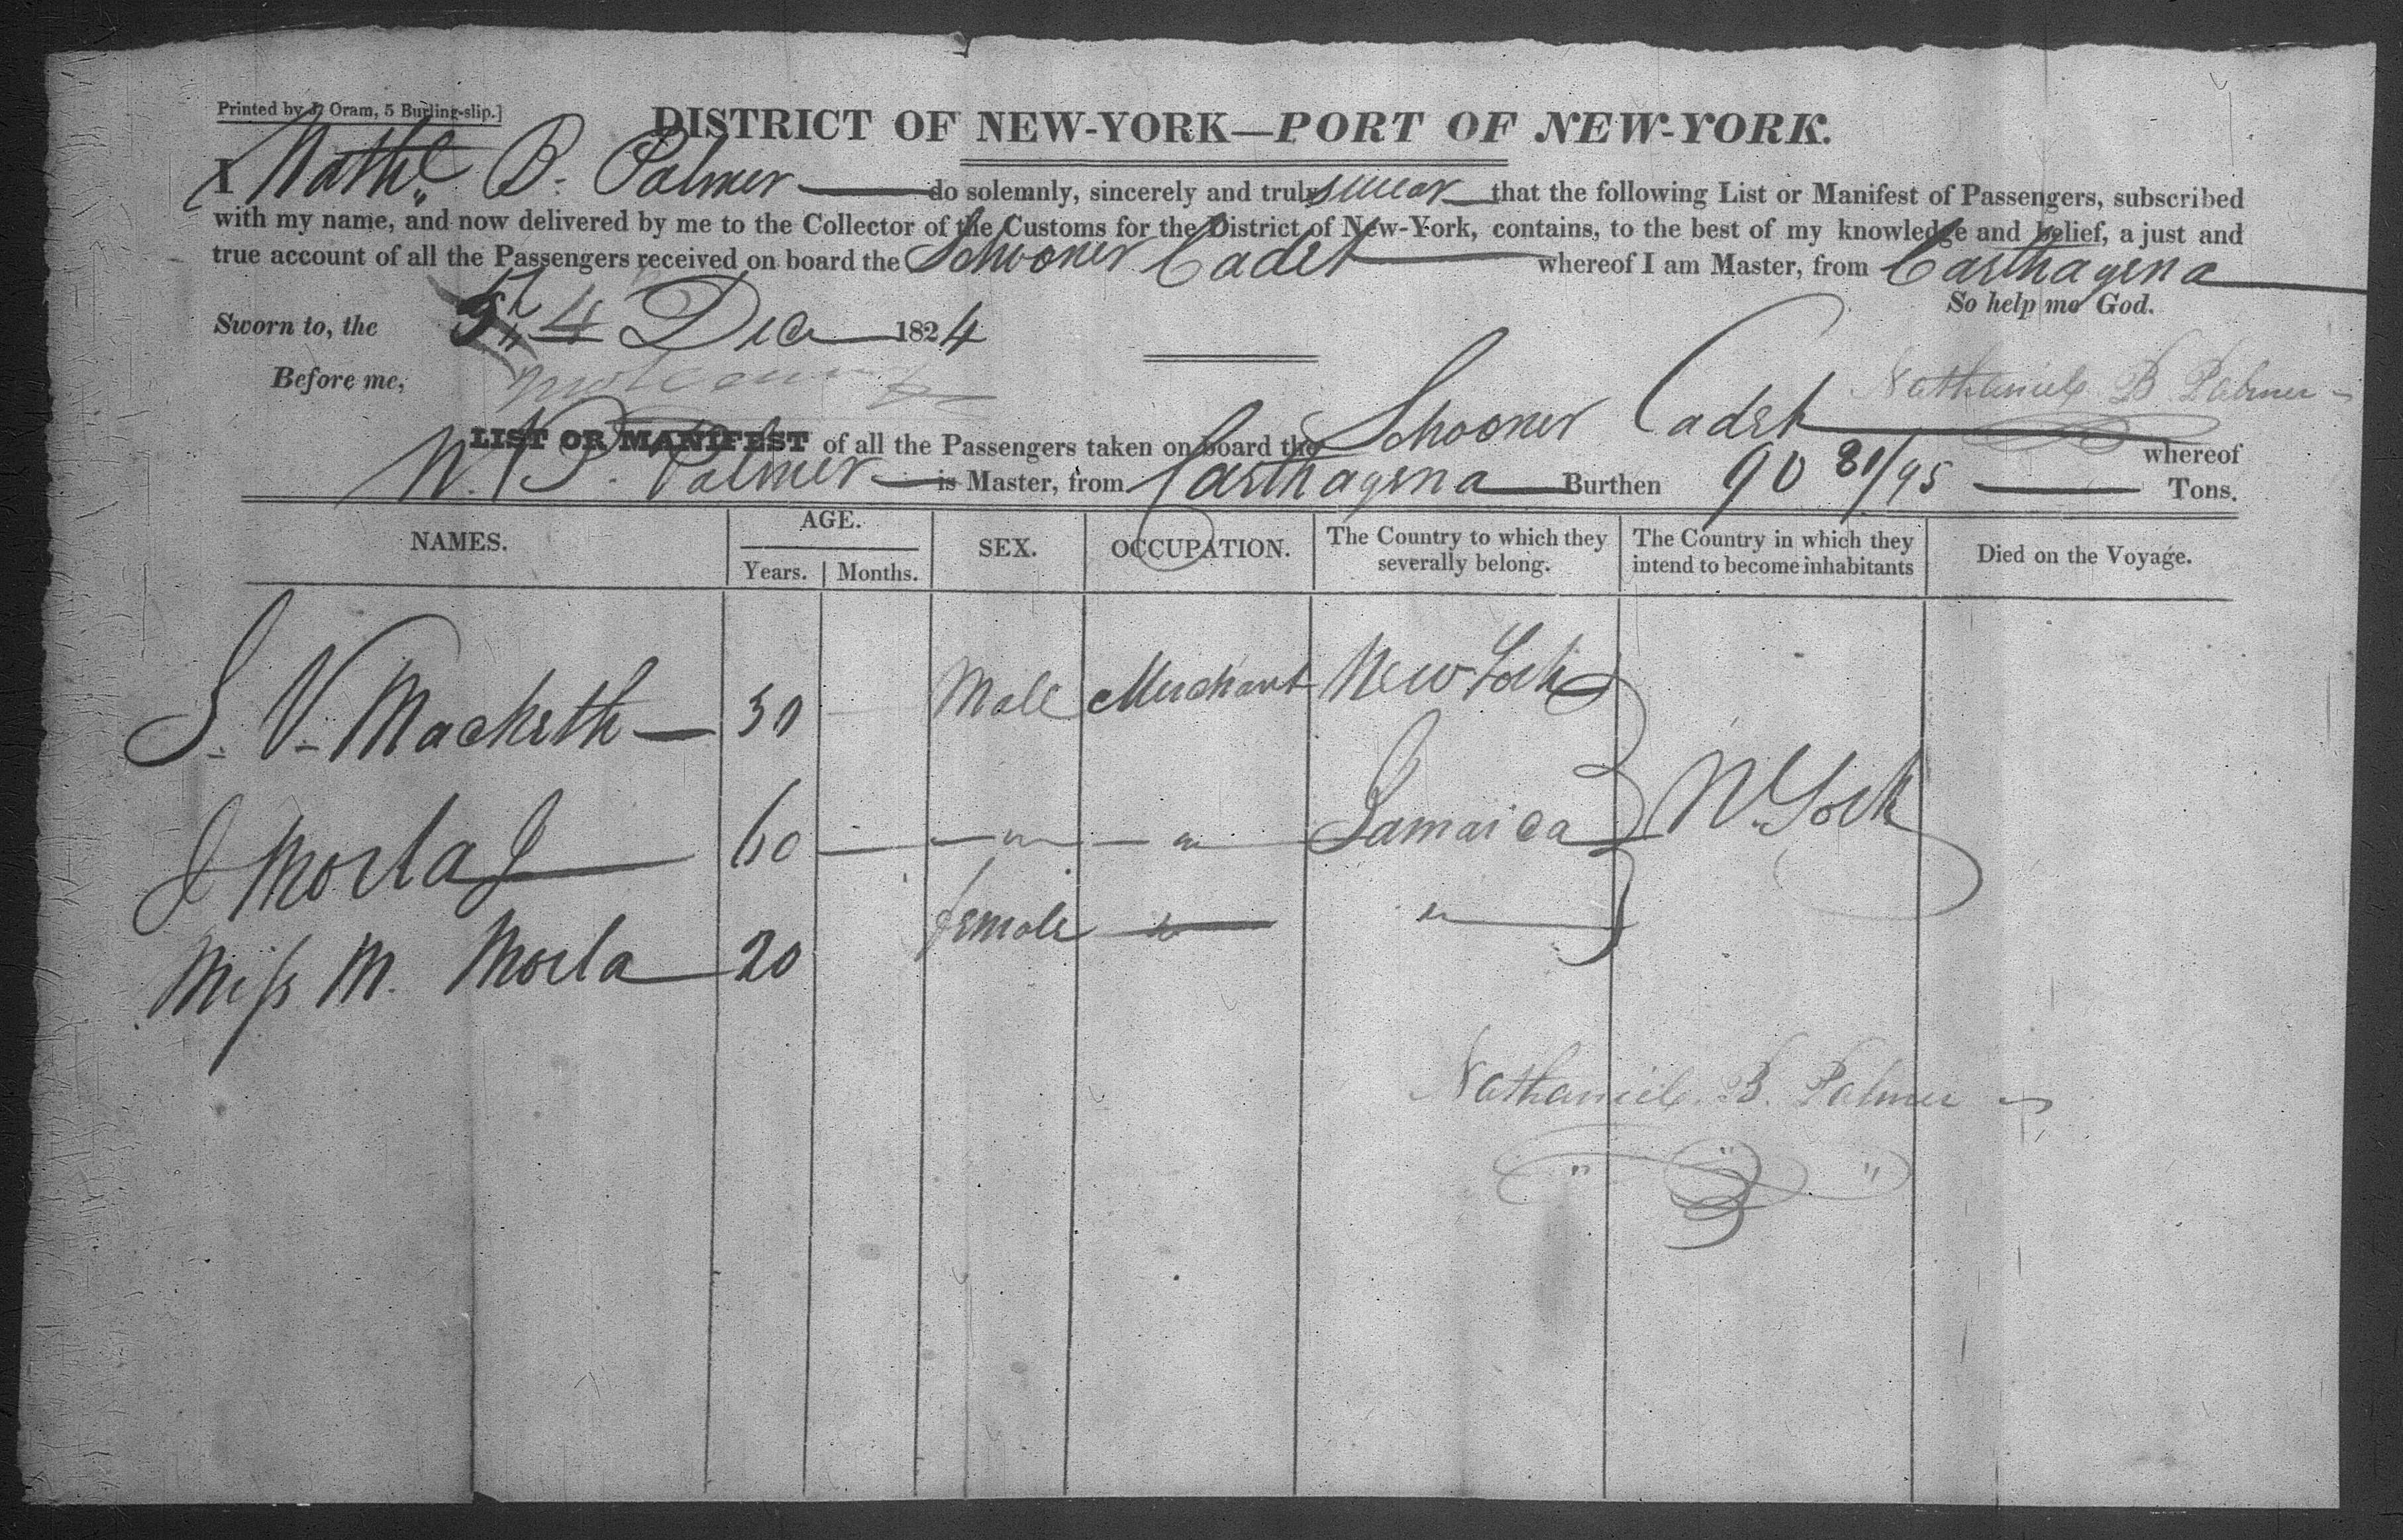 Printed by J. Oram, 5 Burling-slip.]
DISTRICT OF NEW-YORK—PORT OF NEW-YORK.
I Nathl. B. Palmer do solemnly, sincerely and truly swear that the following List or Manifest of Passengers, subscribed
with my name, and now delivered by me to the Collector of the Customs for the District of New-York, contains, to the best of my knowledge and belief, a just and
true account of all the Passengers received on board the Schooner Cadet whereof I am Master, from Carthagena
So help me God.
Sworn to, the 4 Dec 1824
Before me,
Nathaniel B. Palmer
LIST OR MANIFEST of all the Passengers taken on board the Schooner Cadet whereof
N. B. Palmer is Master, from Carthagena Burthen 90 81/95 Tons.
NAMES. AGE. SEX. OCCUPATION. The Country to which they severally belong. The Country in which they intend to become inhabitants Died on the Voyage.
Years. Months.
S. V. Macketh 30 Male Merchant New York
J Morla 60 " " Jamaica N. York
Miss M. Morla 20 female "
Nathaniel B. Palmer